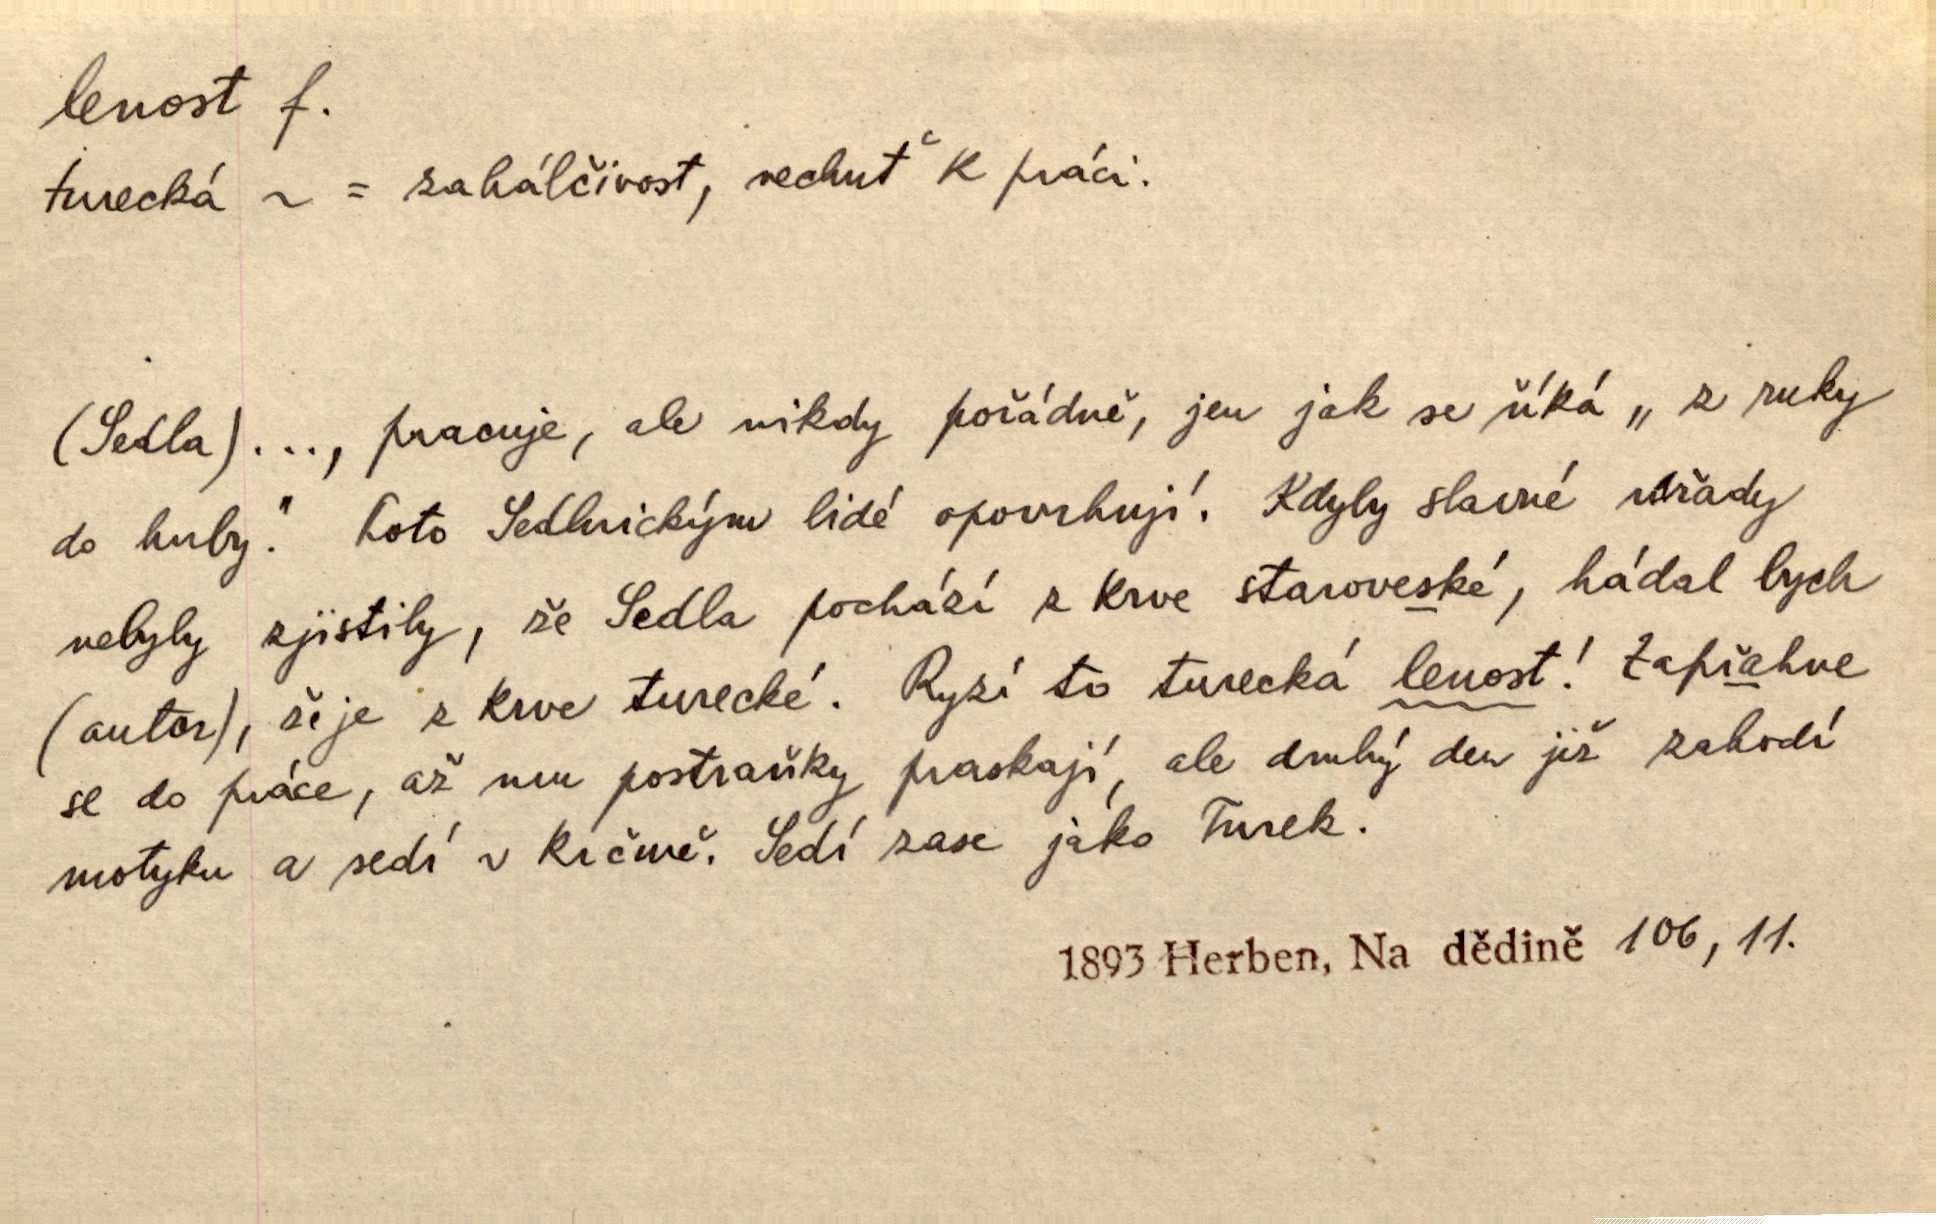 lenost f.
turecká ~ = zahálčivost, nechuť k práci.
(Sedla)..., pracuje, ale nikdy pořádně, jen jak se říká „z ruky
do huby." Toto Sedlnickým lidé opovrhují. Kdyby slavné úřady
nebyly zjistily, že Sedla pochází z krve staroveské, hádal bych
(autor), že je z krve turecké. Ryzí to turecká lenost! Zapřahne
se do práce, až mu postraňky praskají, ale druhý den již zahodí
motyku a sedí v krčmě. Sedí zase jako Turek.
1893 Herben, Na dědině 106, 11.